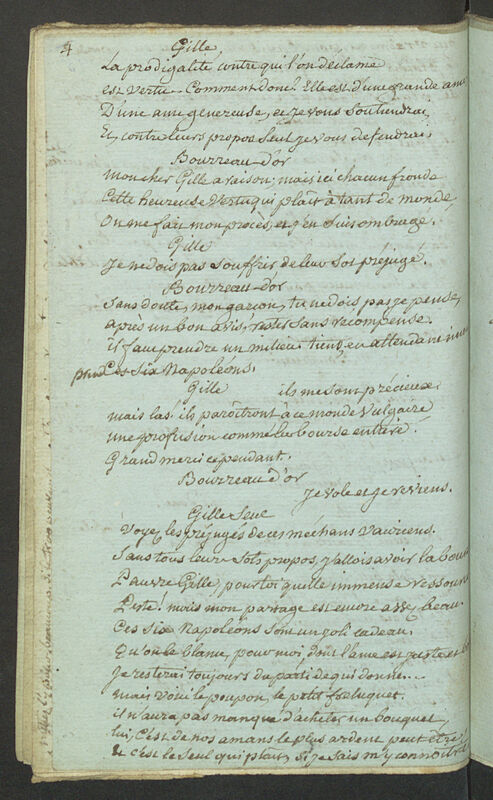 4
Gille
La prodigalité contre qui l'on déclame
est vertu. Comment donc! Elle est d'une grande ame
D'une ame genereuse, et je vous soutiendrai
Et contre leurs propos seul je vous defendrai,
Bourreau-d'or
mon cher Gille a raison; mais ici chacun fronde
Cette heureuse Vertu qui plaît à tant de monde,
On me fait mon procès, et j'en suis ombragé.
Gille
Je ne dois pas souffrir de leur sot préjugé.
Bourreau-d'or
Sans doute, mon garçon, tu ne dois pas, je pense,
après un bon avis, rester sans recompense.
il faut prendre un milieu. tiens, en attendant
Ces six Napoleons,
Gille
ils me sont précieux.
mais las! ils paroîtront à ce monde Vulgaire
une profusion comme la bourse entiere.
Grand merci cependant.
Bourreau d'or
Je vole et je reviens.
Gille Seul
Voyez les préjugés de ces méchans Vauriens.
Sans tous leurs sots propos, j'allois avoir la
Pauvre Gille, pour toi quelle immense
Peste! mais mon partage est encore assez beau.
Ces six Napoléons sont un joli cadeau.
Qu'on le blame, pour moi, dont l'ame est juste et
Je resterai toujours du parti de qui donne..
mais voici le poupon, le petit freluquet.
il n'aura pas manqué d'acheter un bouquet.
lui, c'est de nos amans le plus ardent peut être,
Et c'est le seul qui plait, si je sais m'y connoître